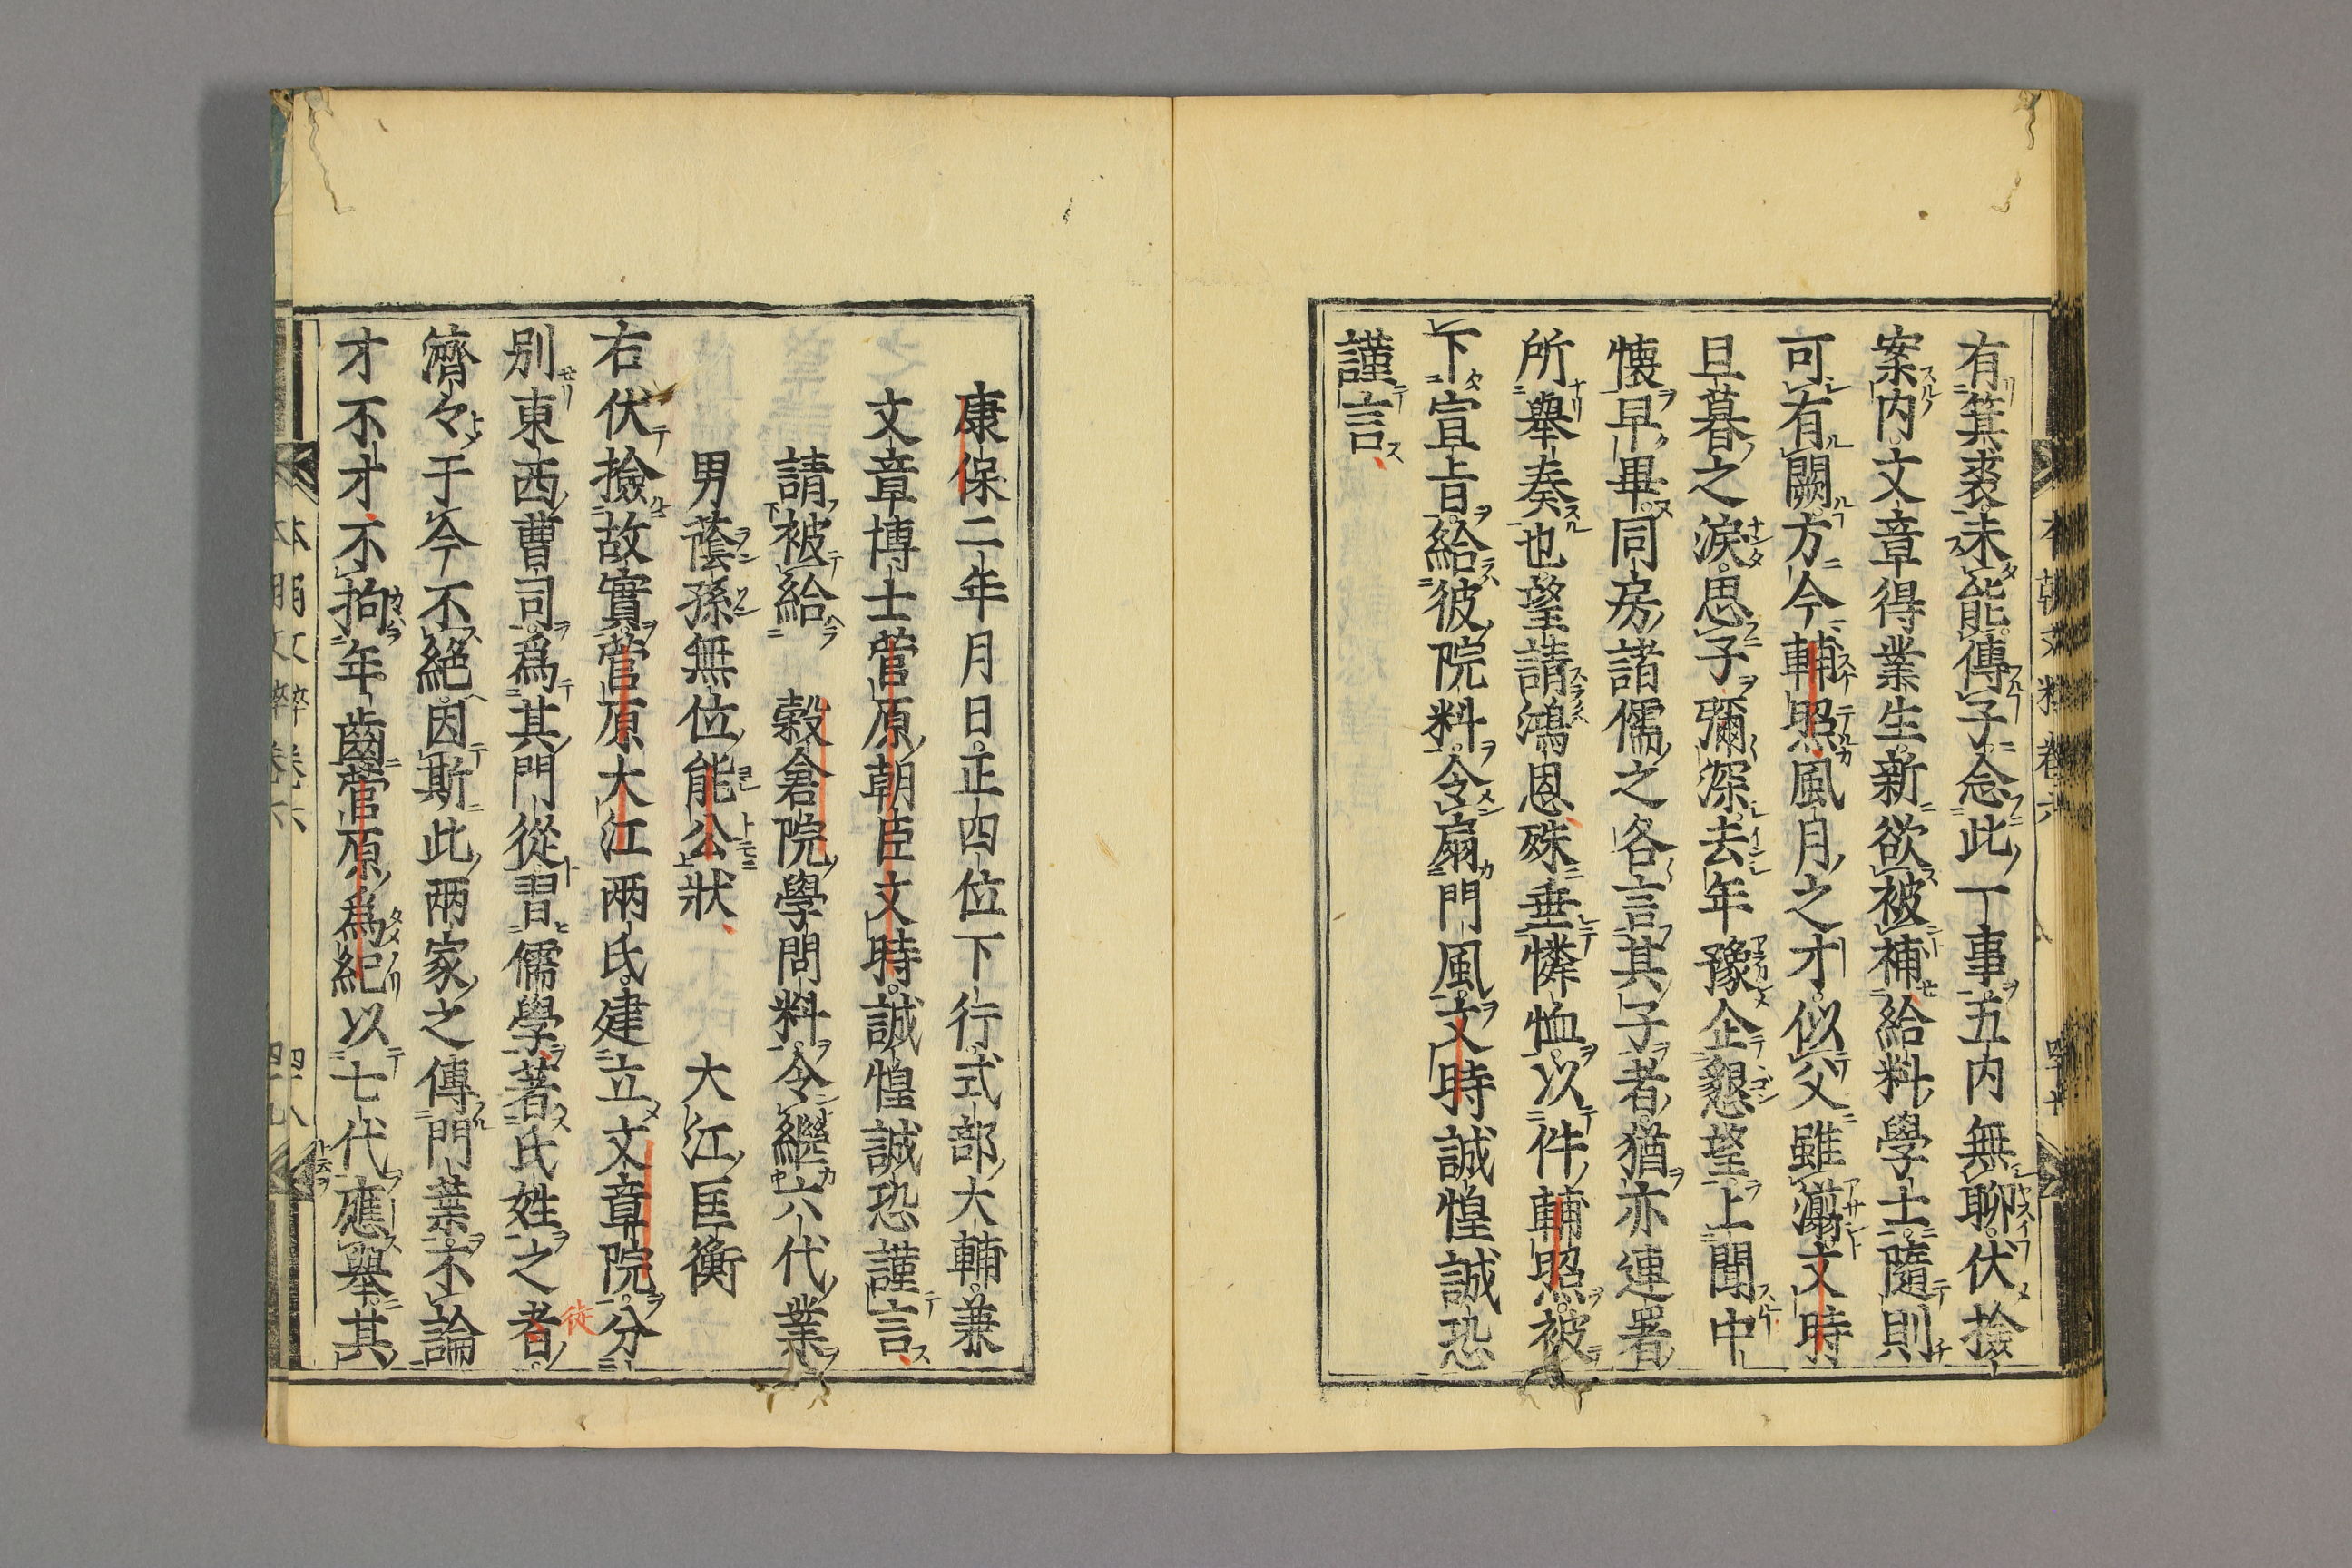 有箕裘未能傳子念此一事五内無聊伏撿
案内文章得業生新欲被補給料學士隨則
可有闕方今輔照風月之才似父雖溺文時
旦暮之淚思子彌深去年豫企懇望上聞中
懐早畢同房諸儒之各言其子者猶亦連署
所舉奏也望請鴻恩殊垂憐恤以件輔照被
下宣旨給彼院料令扇門風文時誠惶誠恐
謹言
康保二年月日正四位下行式部大輔兼
文章博士菅原朝臣文時誠惶誠恐謹言
請被給穀倉院學問料令繼六代業
男蔭孫無位能公狀 大江匡衡
右伏撿故實菅原大江兩氏建立文章院分
別東西曹司爲其門從習儒學著氏姓之者
徒
濟々于今不絕因斯此兩家之傳門業不論
才不才不拘年齒菅原爲紀以七代應舉其
本朝文粹卷六
四八